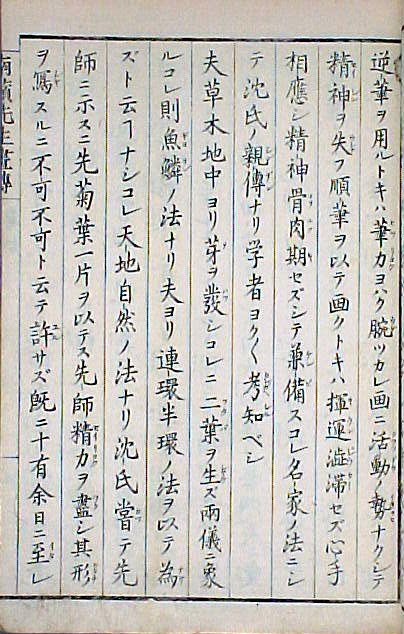 逆筆ヲ用ルトキハ筆力ヨハク腕ツカレ画ニ活動ノ勢ナクシテ
精神ヲ失フ順筆ヲ以テ画クトキハ揮運澁滞セズ心手
相應シ精神骨肉期セズシテ兼備スコレ名家ノ法ニシ
テ沈氏ノ親傳ナリ学者ヨク〱考知ベシ
夫草木地中ヨリ芽ヲ發シコレニ二葉ヲ生ズ兩儀ニ象
ルコレ則魚鱗ノ法ナリ夫ヨリ連環半環ノ法ヲ以テ為
ズト云ヿナシコレ天地自然ノ法ナリ沈氏嘗テ先
師ニ示スニ先菊葉一片ヲ以テス先師精力ヲ盡シ其形
ヲ寫スルニ不可不可ト云テ許サズ既ニ十有余日ニ至レ
先生畫傳